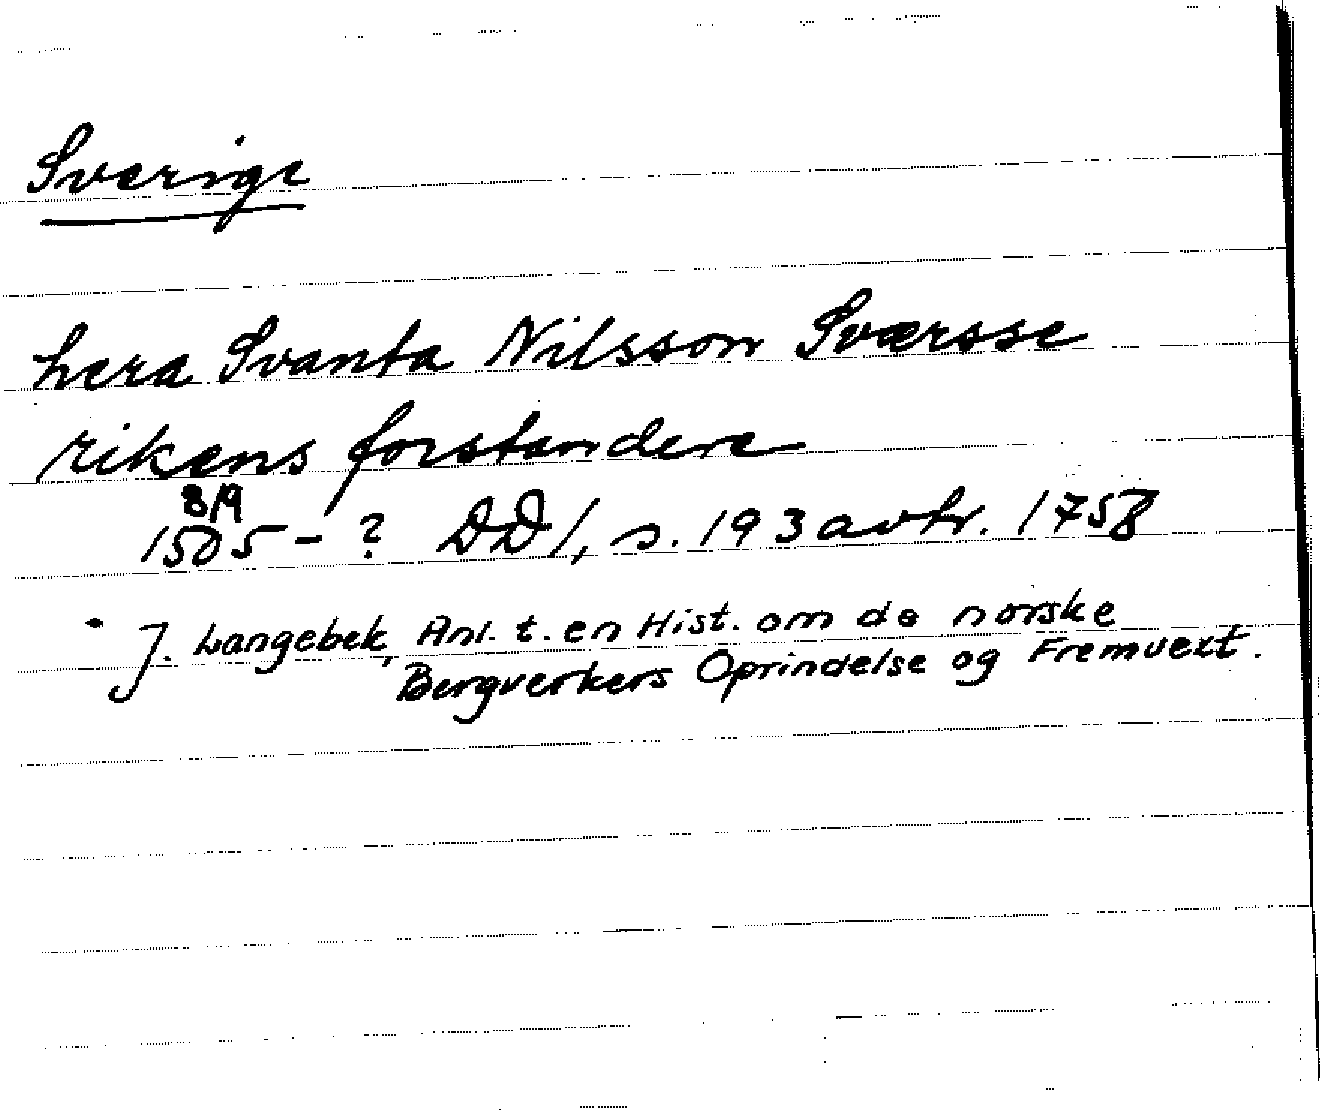 Sverige
hera Svanta Nilsson Sværsse
rikens forstandere
8/9
1505 - ? DD I, s. 193 avtr. 1758
* J. Langebek, Anl. t. en Hist. om de norske
Bergverkers Oprindelse og Fremvext.